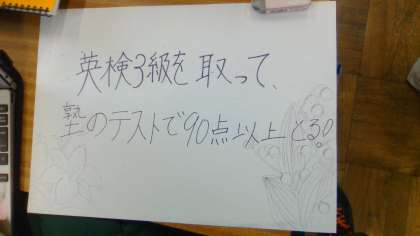 英検3級を取って、
塾のテストで90点以上とる。